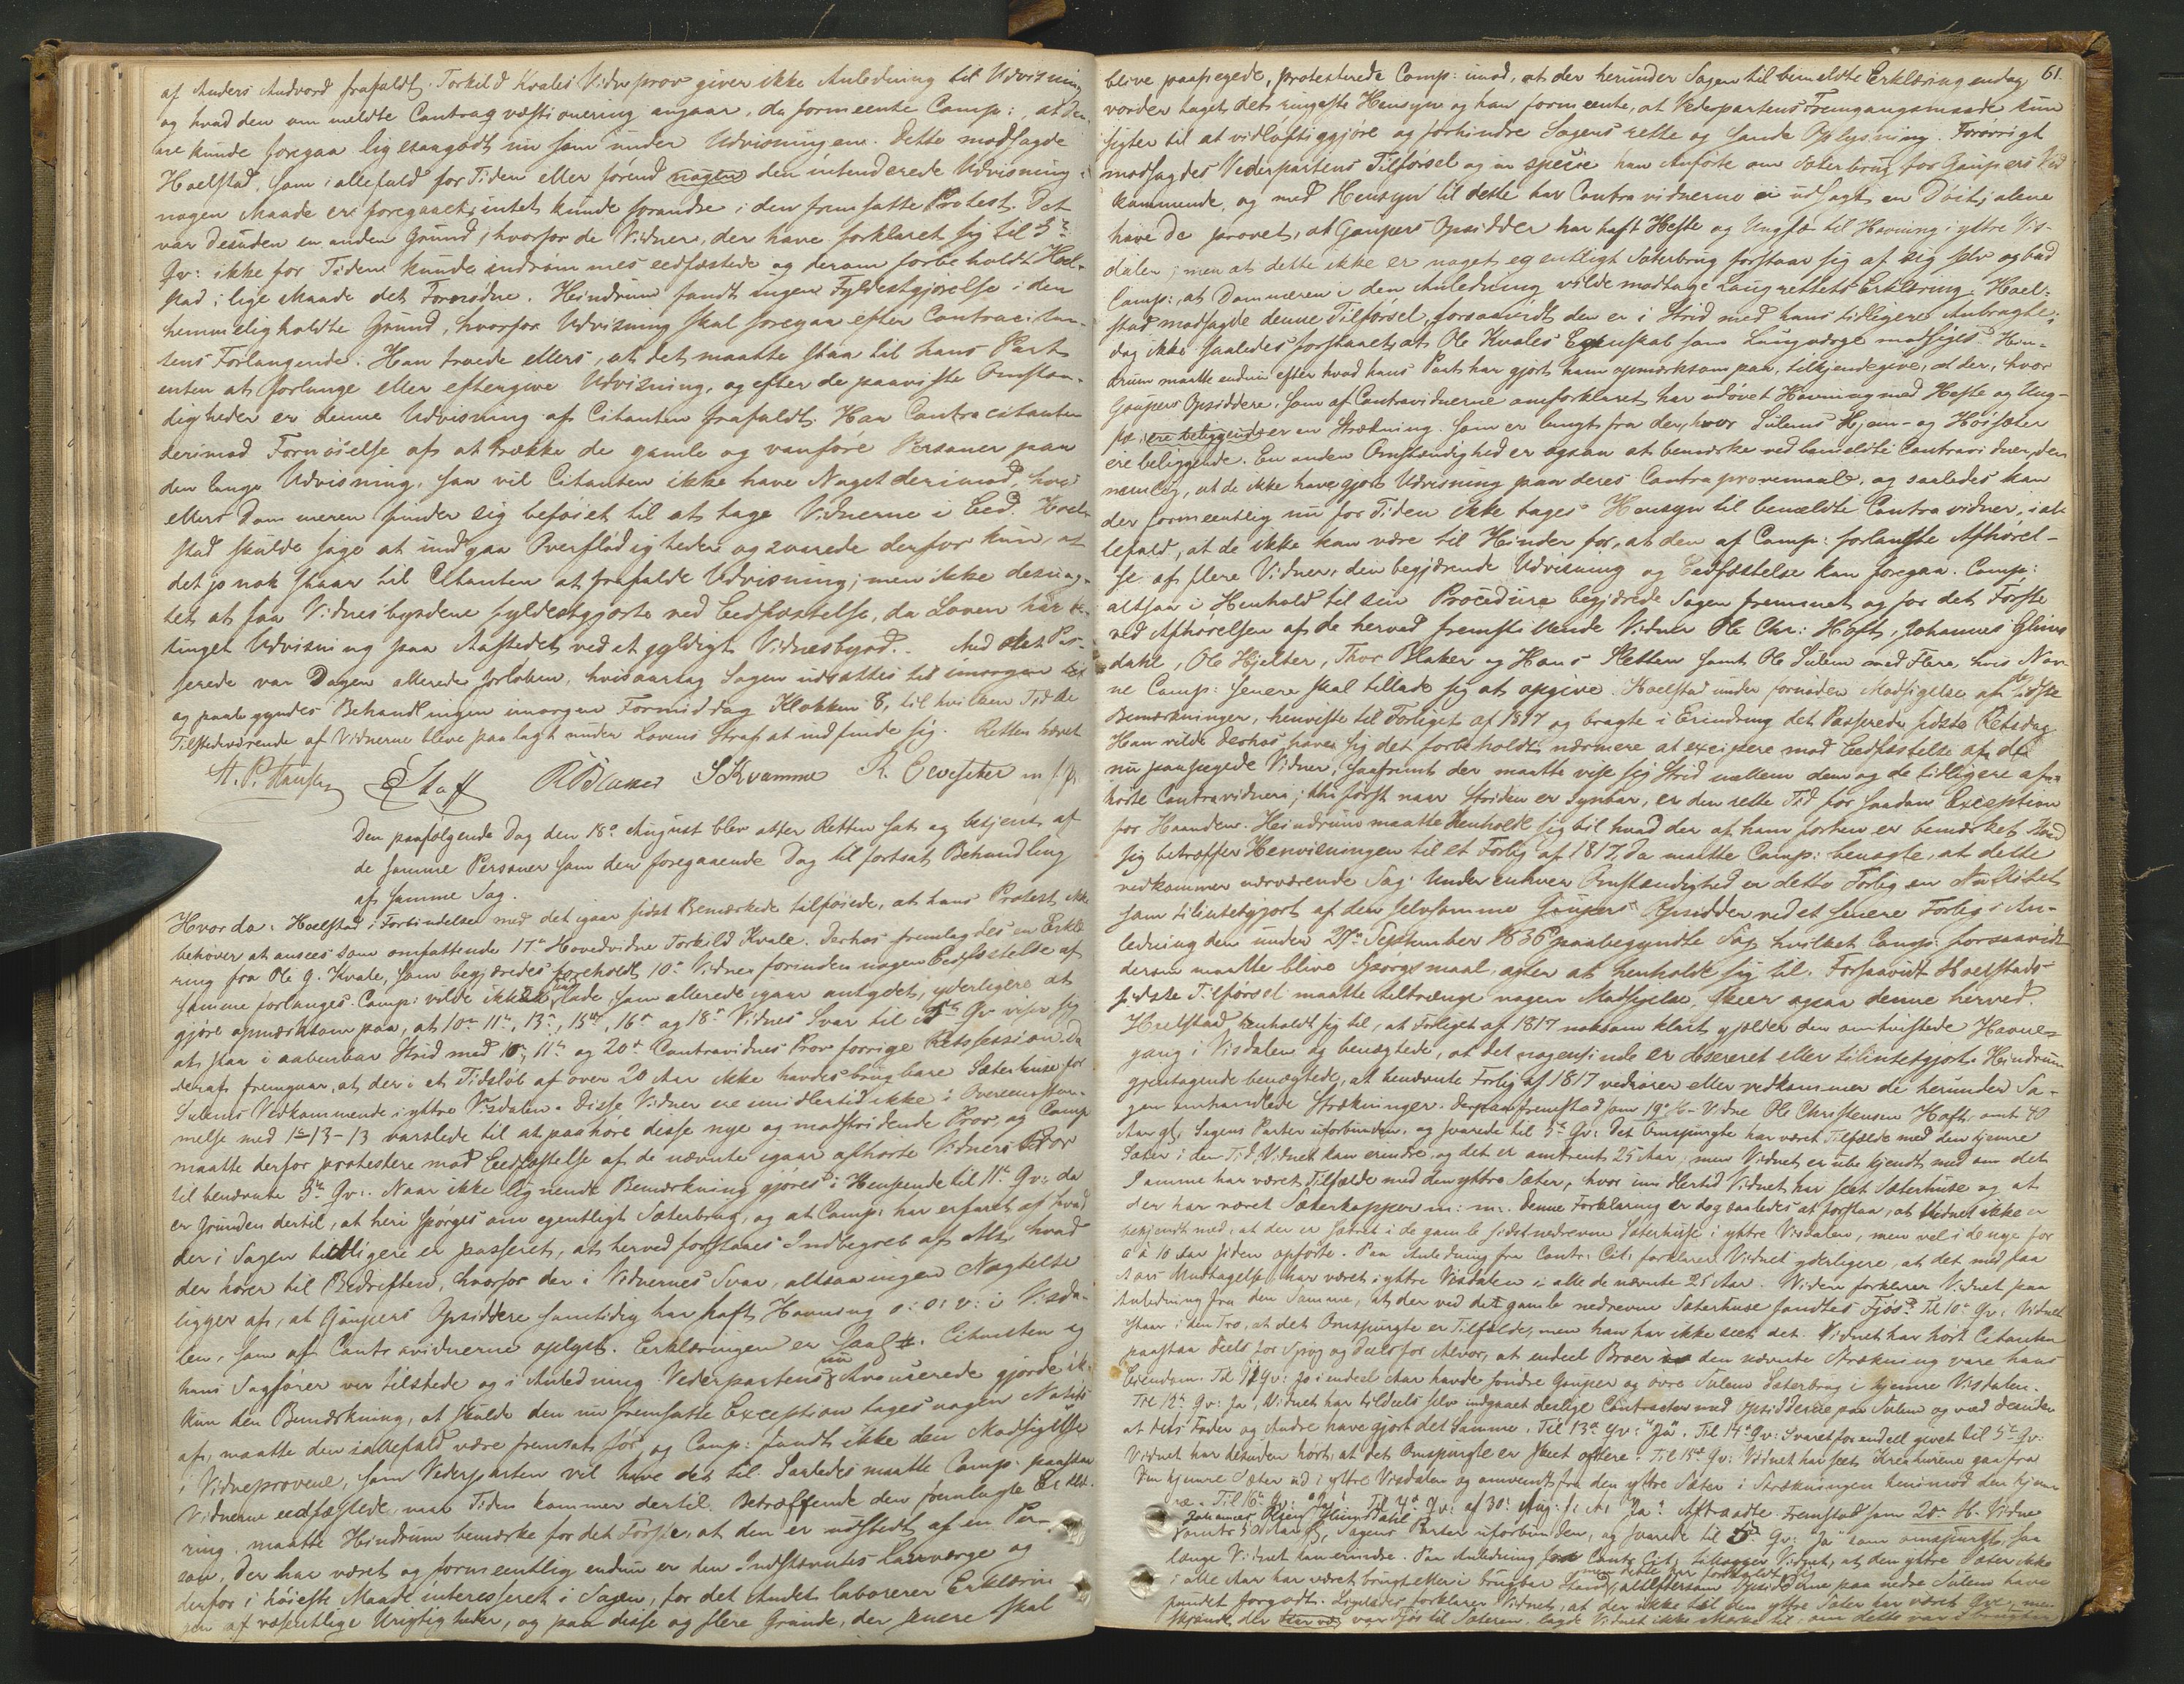 af Anders Andvord frafaldt. Torkild Kvales Vidneprov giver ikke Anledning til Udvisning
og hvad den ommeldte Contraqvæstionering angaar, da formeente Comp:, at den-
ne kunde foregaa ligesaagodt nu som under Udvisningen. Dette modsagde
Hoelstad, som i allefald for Tiden eller førend nogen den intenderede Udvisning i
nogen Maade er foregaaet, intet kunde forandre i den fremsatte Protest. Det
var desuden en anden Grund, hvorfor de Vidner, der have forklaret sig til 5te
Qv: ikke for Tiden kunde indrømmes eedfæstede og derom forbeholdt Hoel-
stad i lige Maade det Fornødne. Heindrum fandt ingen Fyldestgjørelse i den
hemmeligholdte Grund, hvorfor Udvisning skal foregaa efter Contracitan-
tens Forlangende. Han troede ellers, at det maatte staa til hans Part
enten at forlange eller eftergive Udvisning, og efter de paaviste Omstæn-
digheder er denne Udvisning af Citanten frafaldt. Har Contracitanten
derimod Fornøielse af at trække de gamle og vanføre Personer paa
den lange Udvisning, saa vil Citanten ikke have Noget derimod, hvis
ellers Dommeren finder sig beføiet til at tage Vidnerne i Eed. Hoel-
stad skulde sige at indgaa Overflødigheder og svarede derfor kun, at
det jo nok staar til Citanten at frafalde Udvisning; men ikke desuag-
tet at faa Vidnesbyrdene fyldestgjorte ved Eedfæstelse, da Loven har be-
tinget Udvisning paa Aastedet ved et gyldigt Vidnesbyrd. Med det Pas-
serede var Dagen allerede forløben, hvisaarsag Sagen udsattes til imorgen
og paabegyndes Behandlingen imorgen Formiddag Klokken 8, til hvilken Tid de
Tilstedeværende af Vidnerne bleve paalagt under Lovens Straf at indfinde sig. Retten hævet
A. P. Hansen   RBlaker   SKvamme
Den paafølgende Dag den 18de August blev atter Retten sat og betjent af
de samme Personer som den foregaaende Dag til fortsat Behandling
af samme Sag.
Hvorda: Hoelstad i Forbindelse med det igaar sidst Bemærkede tilføiede, at hans Protest ikke
behøver at ansees som omfattende 17de Hovedvidne Torkild Kvale. Derhos fremlagdes en Erklæ-
ring fra Ole G. Kvale, som begjæredes foreholdt 10de Vidne forinden nogen Eedfæstelse af
samme forlanges. Comp: vilde ikke undlade, som allerede igaar antydet, yderligere at
gjøre opmærksom paa, at 10de 11te, 13de, 15de, 16de og 18de Vidnes Svar til 5te Qv viser sig
at staa i aabenbar Strid med 10de, 11te og 20de Contravidnes Prov forrige Retssession. Da
deraf fremgaar, at der i et Tidsløb af over 20 Aar ikke havdes brugbare Sæterhuse for
Sulems Vedkommende i yttre Visdalen. Disse Vidner ere imidlertid ikke i Overeensstem-
melse med 1-13-13 varslede til at paahøre disse nye og modstridende Prov, og Comp
maatte derfor protestere mod Eedfæstelse af de nævnte igaar afhørte Vidners Prov
til benævnte 5te Qv:. Naar ikke lignende Bemærkning gjøres i Henseende til 11te Qv: da
er Grunden dertil, at heri spørges om egentligt Sæterbrug, og at Comp: har erfaret af hvad
der i Sagen tidligere er passeret, at herved forstaaes Indbegreb af Alt hvad
der hører til Bedriften, hvorfor der i Vidnernes Svar, altsaa ingen Nægtelse
ligger af, at Gaupers Opsiddere samtidig har haft Havning o: s: v: i Visda-
len, som af Contravidnerne oplyst. Erklæringen er saal. Citanten og
hans Sagfører var tilstede og i Anledning Vederpartens nu Avancerede gjorde ik-
kun den Bemærkning, at skulde den nu fremsatte Exception tages nogen Notits
af, maatte den i allefald være fremsat før, og Comp: fandt ikke den Modsigelse
i Vidneprovene, som Vederparten vil have det til. Saaledes maatte Comp: paastaa
Vidnerne eedfæstede, naar Tiden kommer dertil. Betræffende den fremlagte Erklæ-
ring, maatte Heindrum bemærke for det Første, at den er udstedt af en Per-
son, der har været og formeentlig endnu er den Indstævntes Laugværge og
derfor i høieste Maade interesseret i Sagen, for det Andet laborerer Erklærin-
gen af væsentlige Urigtigheder, og paa disse og flere Grunde, der senere skal
61.
blive paapegede, protesterede Comp: imod, at der herunder Sagen til bemeldte Erklæring endog
vorder taget det ringeste Hensyn og han formeente, at Vederpartens Fremgangsmaade kun
sigter til at vidløftiggjøre og forhindre Sagens rette og sande Oplysning. Forøvrigt
modsagdes Vederpartens Tilførsel og in specie han Anførte om Sæterbrug for Gaupers Ved-
kommende, og med Hensyn til dette har Contravidnerne ei udsagt en Døit; alene
have de provet, at Gaupers Opsidder har haft Heste og Ungfæ til Havning i yttre Vis-
dalen; men at dette ikke er noget egentligt Sæterbrug forstaar sig af sig selv og bad
Comp: at Dommeren i den Anledning vilde modtage Laugrettets Erklæring. Hoel-
stad modsagde denne Tilførsel, forsaavidt den er i Strid med hans tidligere Anbragte;
dog ikke saaledes forstaaet, at Ole Kvales Egenskab som Laugværge modsiges. Hein-
drum maatte endnu efter hvad hans Part har gjort ham opmærksom paa, tilkjendegive, at der, hvor
Gaupers Opsiddere, som af Contravidnerne omforklaret har udøvet Havning med Heste og Ung-
fæ, ere beliggende er en Strækning som er langt fra der, hvor Sulems Hjem- og Høisæter
ere beliggende. En anden Omstændighed er ogsaa at bemærke ved bemeldte Contravidner, den
nemlig, at de ikke have gjort Udvisning paa deres Contraprovemaal, og saaledes kan
der formeentlig nu for Tiden ikke tages Hensyn til bemeldte Contravidner, i al-
lefald, at de ikke kan være til Hinder for, at den af Comp: forlangte Afhørel-
se af flere Vidner, den begjærende Udvisning og Eedfæstelse kan foregaa. Comp:
altsaa i Henhold til sin Procedure begjærede Sagen fremmet og for det Første
ved Afhørelsen af de herved fremstillende Vidner Ole Chr: Hoft, Johannes Glims-
dahl, Ole Hjelter, Thor Blaker og Hans Sletten samt Ole Sulem med Flere, hvis Nav-
ne Comp: senere skal tillade sig at opgive. Hoelstad under fornøden Modsigelse af de sidste
Bemærkninger, henviste til Forliget af 1817 og bragte i Erindring det Passerede sidste Retsdag
Han vilde derhos have sig det forbeholdt nærmere at excipere mod Eedfæstelse af de
nu paapegede Vidner, saafremt der maatte vise sig Strid mellem dem og de tidligere af-
hørte Contravidner; thi først naar Striden er synbar, er den rette Tid for saadan Exception
for Haanden. Heindrum maatte henholde sig til hvad der af ham forhen er bemærket. Hvad
sig betræffer Henvisningen til et Forlig af 1817, da maatte Comp: benægte, at dette
vedkommer nærværende Sag. Under enhver Omstændighed er dette Forlig en Nullitet
som tilintetgjort af den selvsamme Gaupers Opsidder ved et senere Forlig i An-
ledning den under 27de September 1836 paabegyndte Sag, hvilket Comp: forsaavidt
derom maatte blive Spørgsmaal, agter at henholde sig til. Forsaavidt Hoelstads
sidste Tilførsel maatte tiltrænge nogen Modsigelse, skeer ogsaa denne herved.
Hoelstad henholdt sig til, at Forliget af 1817 noksom klart gjelder den omtvistede Havne-
gang i Visdalen og benægtede, at det nogensinde er deserert eller tilintetgjort. Heindrum
gjentagende benægtede, at benævnte Forlig af 1817 vedrører eller vedkommer de herunder Sa-
gen omhandlede Strækninger. Derpaa fremstod som 19de H-Vidne Ole Christensen Hoft, omt 40
Aar gl, Sagens Parter uforbunden, og svarede til 5te Qv: Det Omspurgte har været Tilfælde med den hjemre
Sæter i den Tid, Vidnet kan erindre, og det er omtrent 25 Aar; men Vidnet er ube kjendt med om det
Samme har været Tilfælde med den yttre Sæter, hvor imidlertid Vidnet har seet Sæterhuse og at
der har været Sæterkopper m: m:. Denne Forklaring er dog saaledes at forstaa, at Vidnet ikke er
bekjendt med, at der er sætret i de gamle sidst nedrevne Sæterhuse i yttre Visdalen, men vel i de nye for
6 à 10 Aar siden opførte. Paa Anledning fra Contr: Cit: forklarer Vidnet yderligere, at det med faa
Aars Undtagelse har været i yttre Visdalen i alle de nævnte 25 Aar. Videre forklarer Vidnet paa
Anledning fra den Samme, at der ved det gamle nedrevne Sæterhuse fandtes Fjøs. Til 10de Qv: Vidnet
staar i den Tro, at det Omspurgte er Tilfælde, men han har ikke seet det. Vidnet har hørt Citanten
paastaa deels for Spøg og deels for Alvor, at endeel Broer i den nævnte Strækning vare hans
Eiendom. Til 11te Qv: Jo i endeel Aar havde søndre Gauper og øvre Sulem Sæterbrug i hjemre Visdalen.
Til 12te Qv: Ja, Vidnet har tildeels selv indgaaet deslige Contracter med Opsidderne paa Sulem og ved desuden
at dets Fader og Andre have gjort det Samme. Til 13de Qv: "Ja". Til 14de Qv: Svaret for endeel givet til 5te Qv:
Vidnet har desuden hørt, at det Omspurgte er skeet oftere. Til 15de Qv: Vidnet har seet Kreaturene gaa fra
den hjemre Sæter ud i yttre Visdalen og omvendt fra den yttre Sæter i Strækningen henimod den hjem-
re. Til 16de Qv: "Ja". Til 4de Qv: af 30te Aug: f: A: "Ja". Aftraadte. Fremstod som 20de H-Vidne
Johannes Glimsdahl
omtr 50 Aar gl, Sagens Parter uforbunden, og svarede til 5te Qv: "Ja" som omspurgt, saa
længe Vidnet kan erindre. Paa Anledning fra Contr: Cit: tillægger Vidnet, at den yttre Sæter ikke
i alle Aar har været brugt eller i brugbar Stand, alt eftersom Opsidderne paa nedre Sulem have
fundet forgodt. Ligeledes forklarer Vidnet, at der ikke til den yttre Sæter har været
skjøndt der var Fjøs til Sæteren, lagde Vidnet ikke Mærke til om dette var i